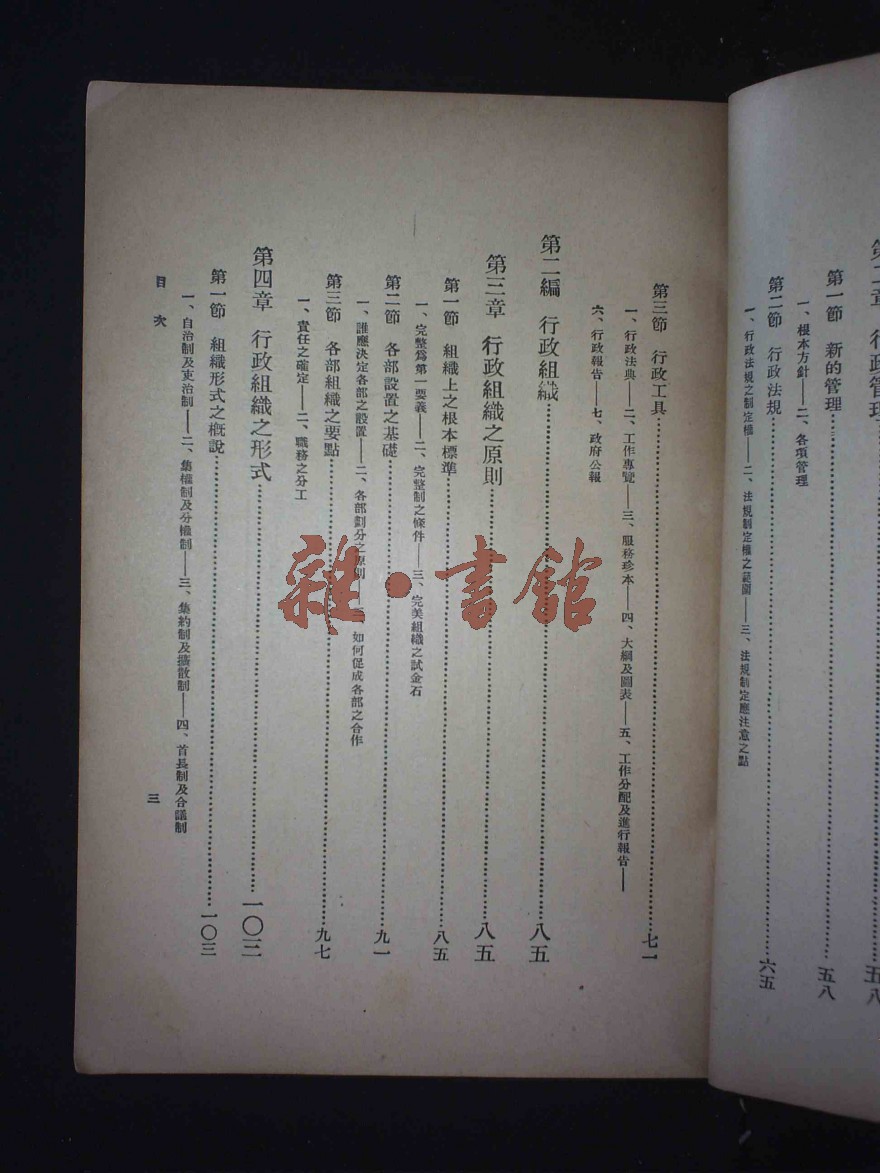 第二章 行政管理……五八
第一節 新的管理……五八
一、根本方針——二、各項管理
第二節 行政法規……六五
一、行政法規之制定權——二、法規制定權之範圍——三、法規制定應注意之點
第三節 行政工具……七一
一、行政法典——二、工作專覽——三、服務珍本——四、大綱及圖表——五、工作分配及進行報告——
六、行政報告——七、政府公報
第二編 行政組織……八五
第三章 行政組織之原則……八五
第一節 組織上之根本標準……八五
一、完整爲第一要義——二、完整制之條件——三、完美組織之試金石
第二節 各部設置之基礎……九一
一、誰應決定各部之設置——二、各部劃分之原則——三、如何促成各部之合作
第三節 各部組織之要點……九七
一、責任之確定——二、職務之分工
第四章 行政組織之形式……一〇三
第一節 組織形式之概說……一〇三
一、自治制及吏治制——二、集權制及分權制——三、集約制及擴散制——四、首長制及合議制
目次
三
雜·書館